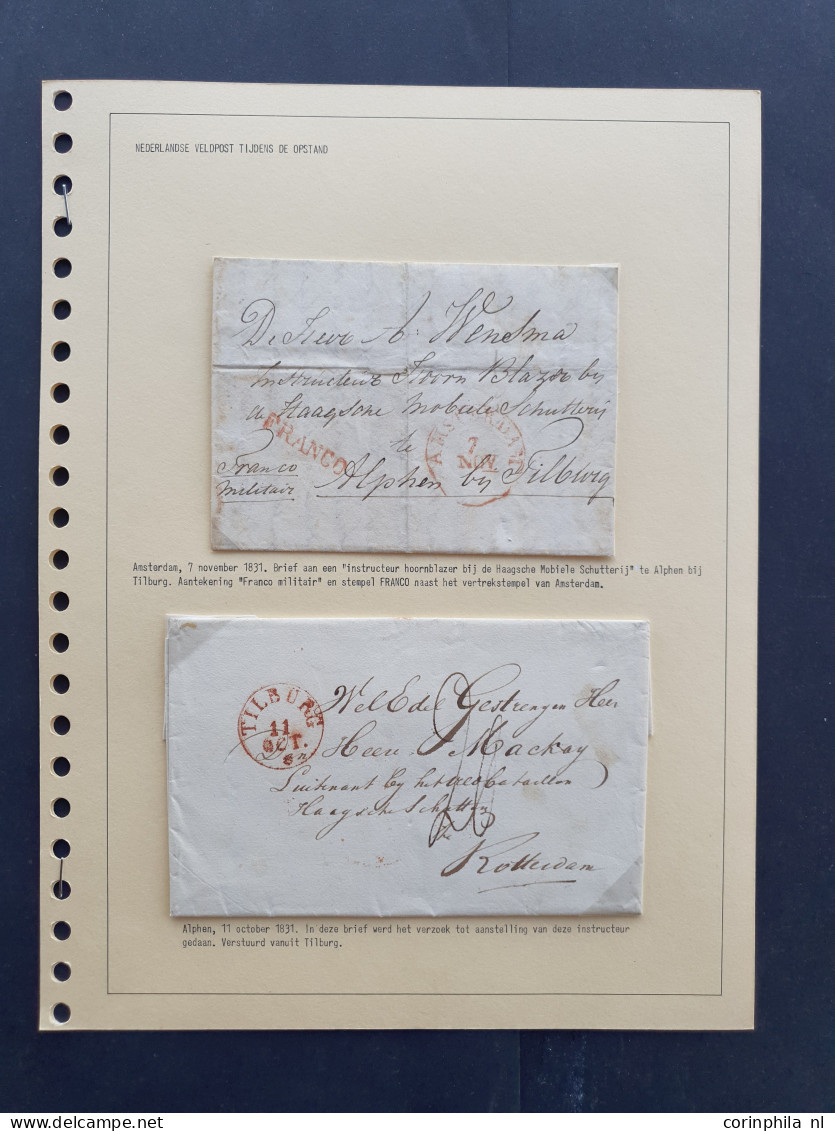 NEDERLANDSE VELDPOST TIJDENS DE OPSTAND
De Heer A: Wensma
Instructeur Hoorn Blazer bij
de Haagsche Mobiele Schutterij
te
FRANCO
AMSTERDAM
7
NOV
Franco
Militair
Alphen bij Tilburg
Amsterdam, 7 november 1831. Brief aan een "instructeur hoornblazer bij de Haagsche Mobiele Schutterij" te Alphen bij
Tilburg. Aantekening "Franco militair" en stempel FRANCO naast het vertrekstempel van Amsterdam.
TILBURG
11
OCT.
WelEdel Gestrengen Heer
Den Heer Mackay
Luitenant by het Bataillon
Haagsche Schutters
te
Rotterdam
Alphen, 11 october 1831. In deze brief werd het verzoek tot aanstelling van deze instructeur
gedaan. Verstuurd vanuit Tilburg.
corinphila nl